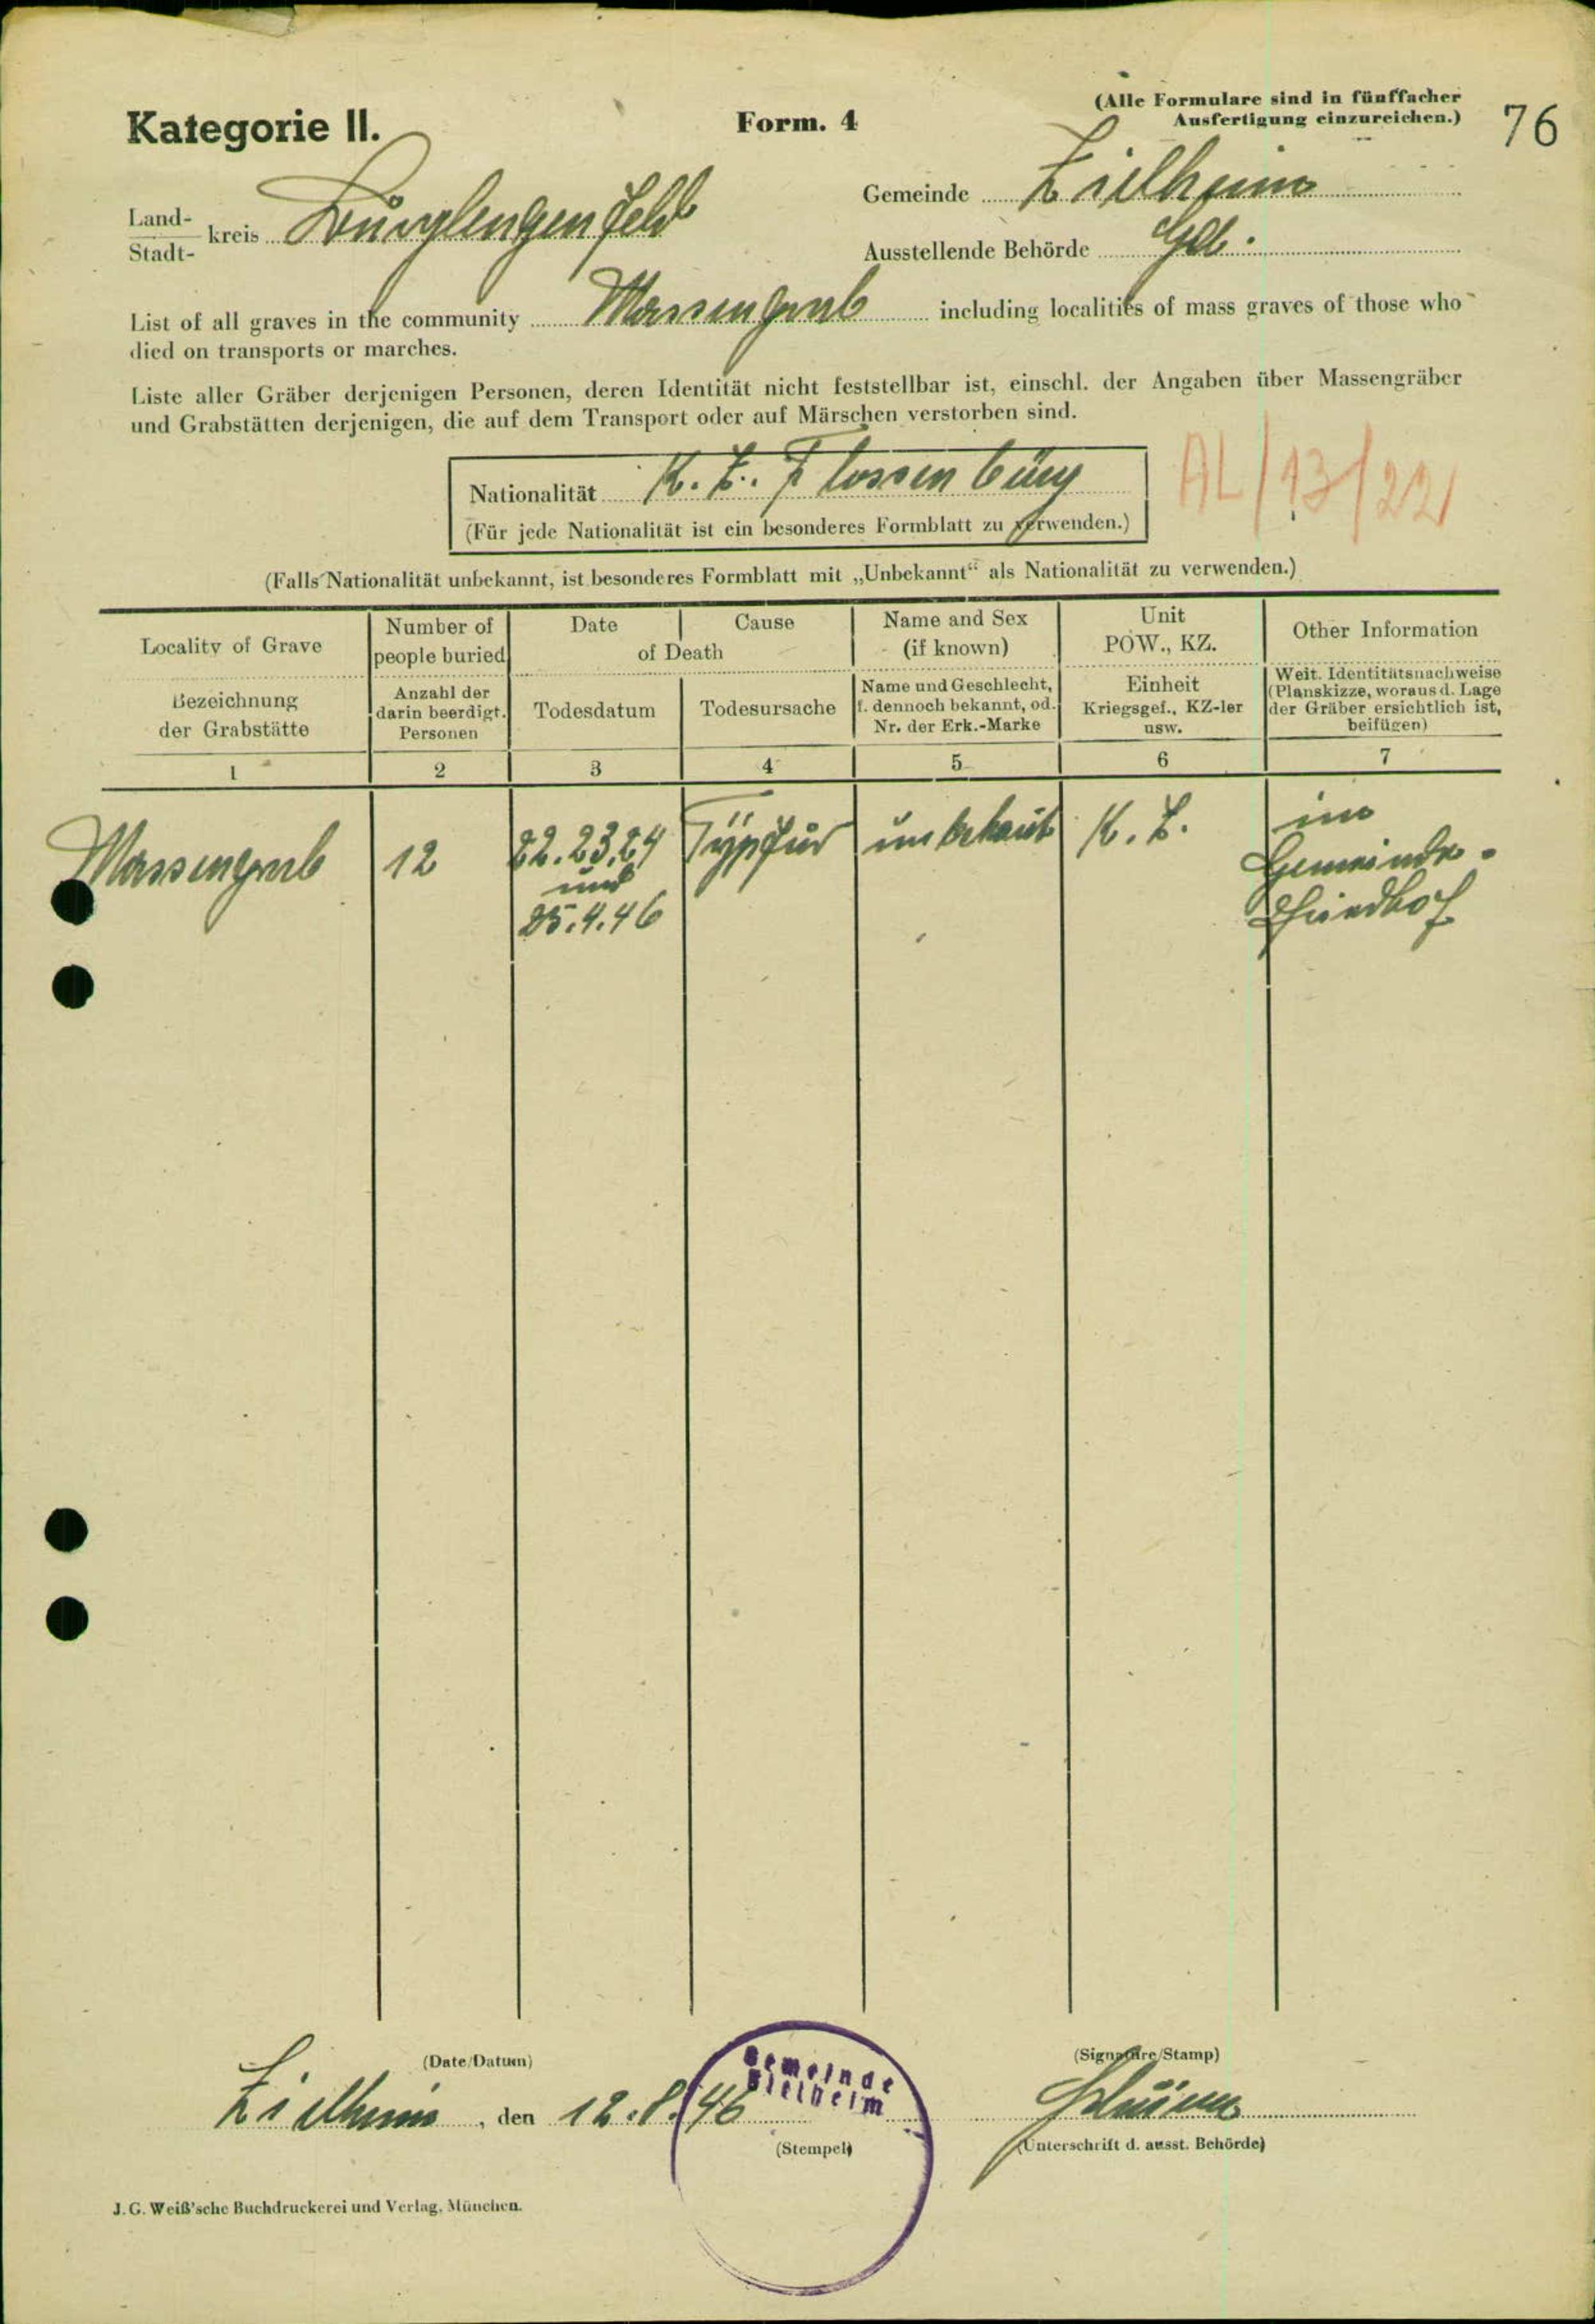 Kategorie II.
Form. 4
(Alle Formulare sind in fünffacher
Ausfertigung einzureichen.)
76
Land-
Stadt-
kreis Burglengenfeld
Gemeinde Zielheim
Ausstellende Behörde Gde.
List of all graves in the community Massengrab including localities of mass graves of those who
died on transports or marches.
Liste aller Gräber derjenigen Personen, deren Identität nicht feststellbar ist, einschl. der Angaben über Massengräber
und Grabstätten derjenigen, die auf dem Transport oder auf Märschen verstorben sind.
Nationalität K. Z. Flossenbürg
(Für jede Nationalität ist ein besonderes Formblatt zu verwenden.)
AL/13/22
(Falls Nationalität unbekannt, ist besonderes Formblatt mit „Unbekannt“ als Nationalität zu verwenden.)
Locality of Grave
Number of
people buried
Date
Cause
of Death
Name and Sex
(if known)
Unit
POW., KZ.
Other Information
Bezeichnung
der Grabstätte
Anzahl der
darin beerdigt.
Personen
Todesdatum
Todesursache
Name und Geschlecht,
f. dennoch bekannt, od.
Nr. der Erk.-Marke
Einheit
Kriegsgef., KZ-ler
usw.
Weit. Identitätsnachweise
(Planskizze, woraus d. Lage
der Gräber ersichtlich ist,
beifügen)
1 2 3 4 5 6 7
Massengrab 12 22. 23. 24 unbekant K. Z. im
und Gemeinde-
25.4.46 Friedhof
(Date/Datum)
(Signature/Stamp)
Zielheim, den 12.8.46
Gemeinde
Zielheim
(Stempel)
(Unterschrift d. ausst. Behörde)
J. G. Weiß'sche Buchdruckerei und Verlag, München.